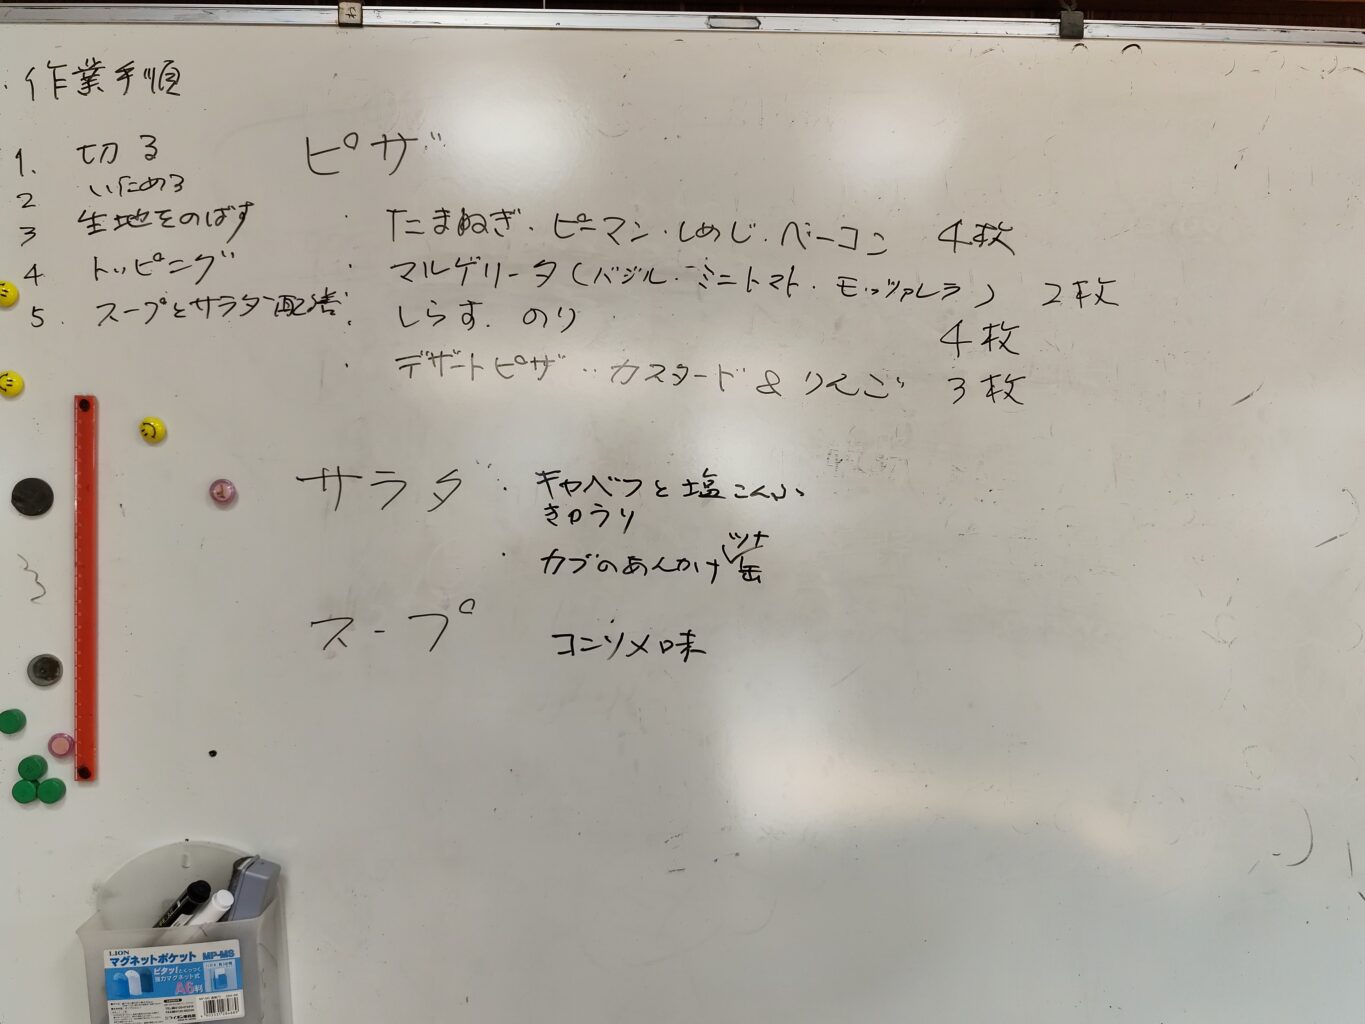 ・作業手順
1. 切る
2 いためる
3 生地をのばす
4 トッピング
5. スープとサラダ配膳
ピザ
・たまねぎ・ピーマン・しめじ・ベーコン 4枚
・マルゲリータ(バジル・ミニトマト・モッツァレラ) 2枚
・しらす. のり 4枚
・デザートピザ ‥カスタード&りんご 3枚
サラダ・キャベツと塩こんぶ
きゅうり
・カブのあんかけ ツナ缶
スープ コンソメ味
LION
マグネットポケット MP-MS
ピタッ!とくっつく
強力マグネット式
A6判